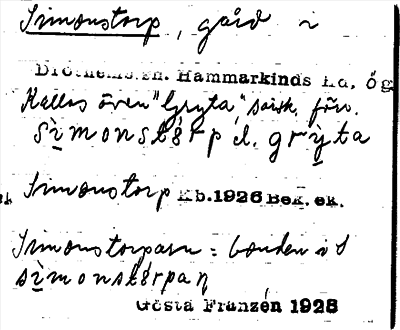 Simonstorp, gård i
Drothems sn. Hammarkinds hd, ög
Kallas även "Gryta" särsk. förr.
sìmonstɵ́rp el. grỳta
Simonstorp Kb. 1926 Bek. ek.
Simonstorparn = bonden i S
sìmonstɵ́rpaṇ
Gösta Franzén 1928